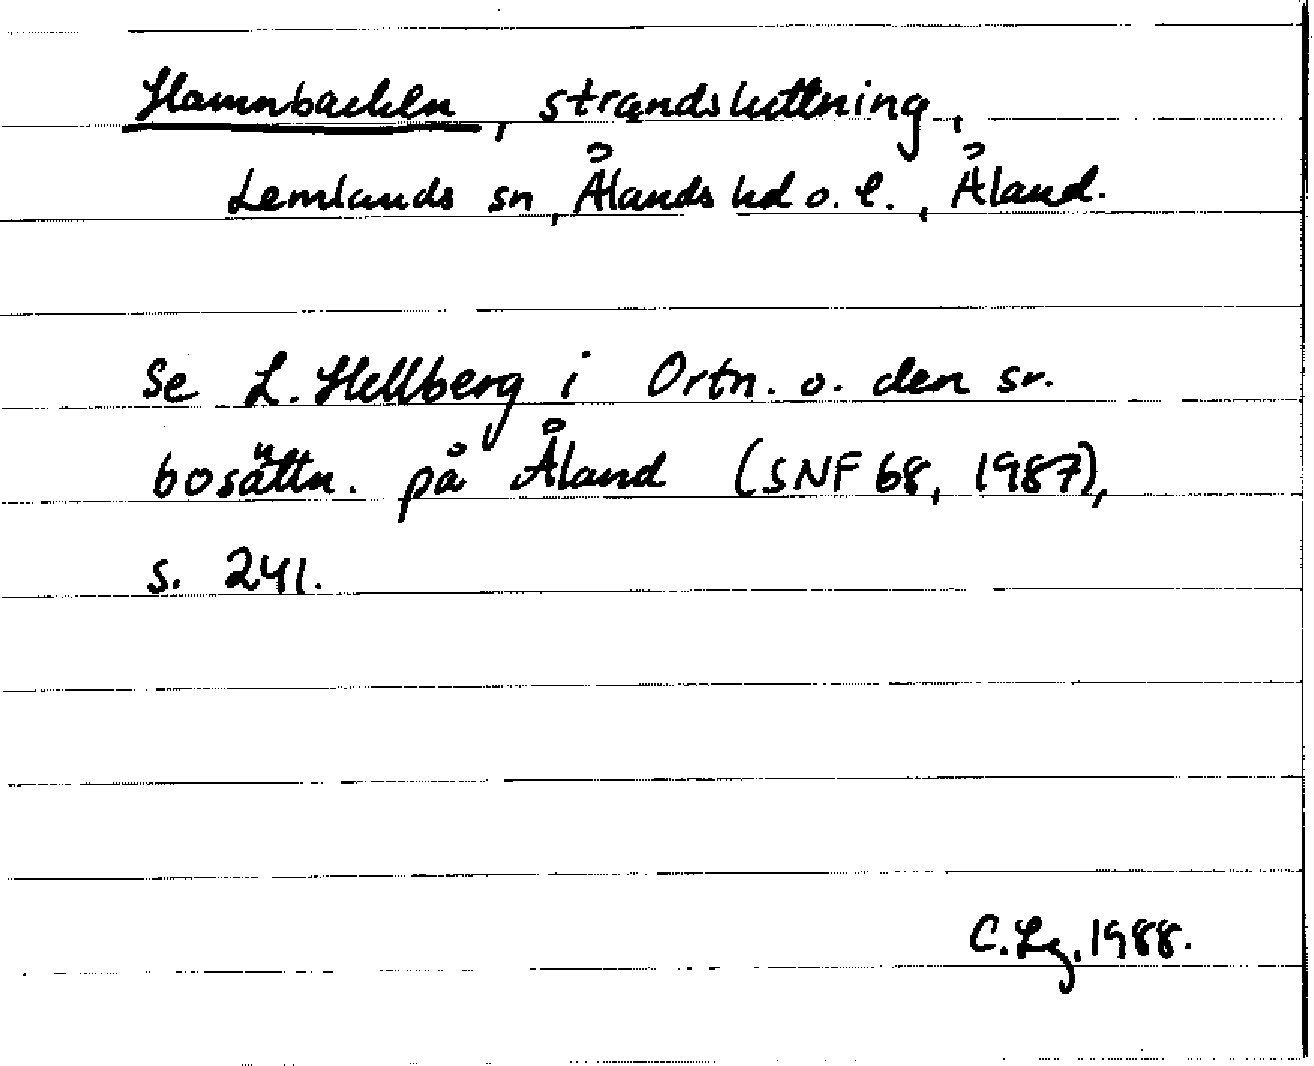 Hamnbacken, strandsluttning,
Lemlands sn, Ålands hd o. l., Åland.
Se L. Hellberg i Ortn. o. den sv.
bosättn. på Åland (SNF 68, 1987),
s. 241.
C. Lg. 1988.